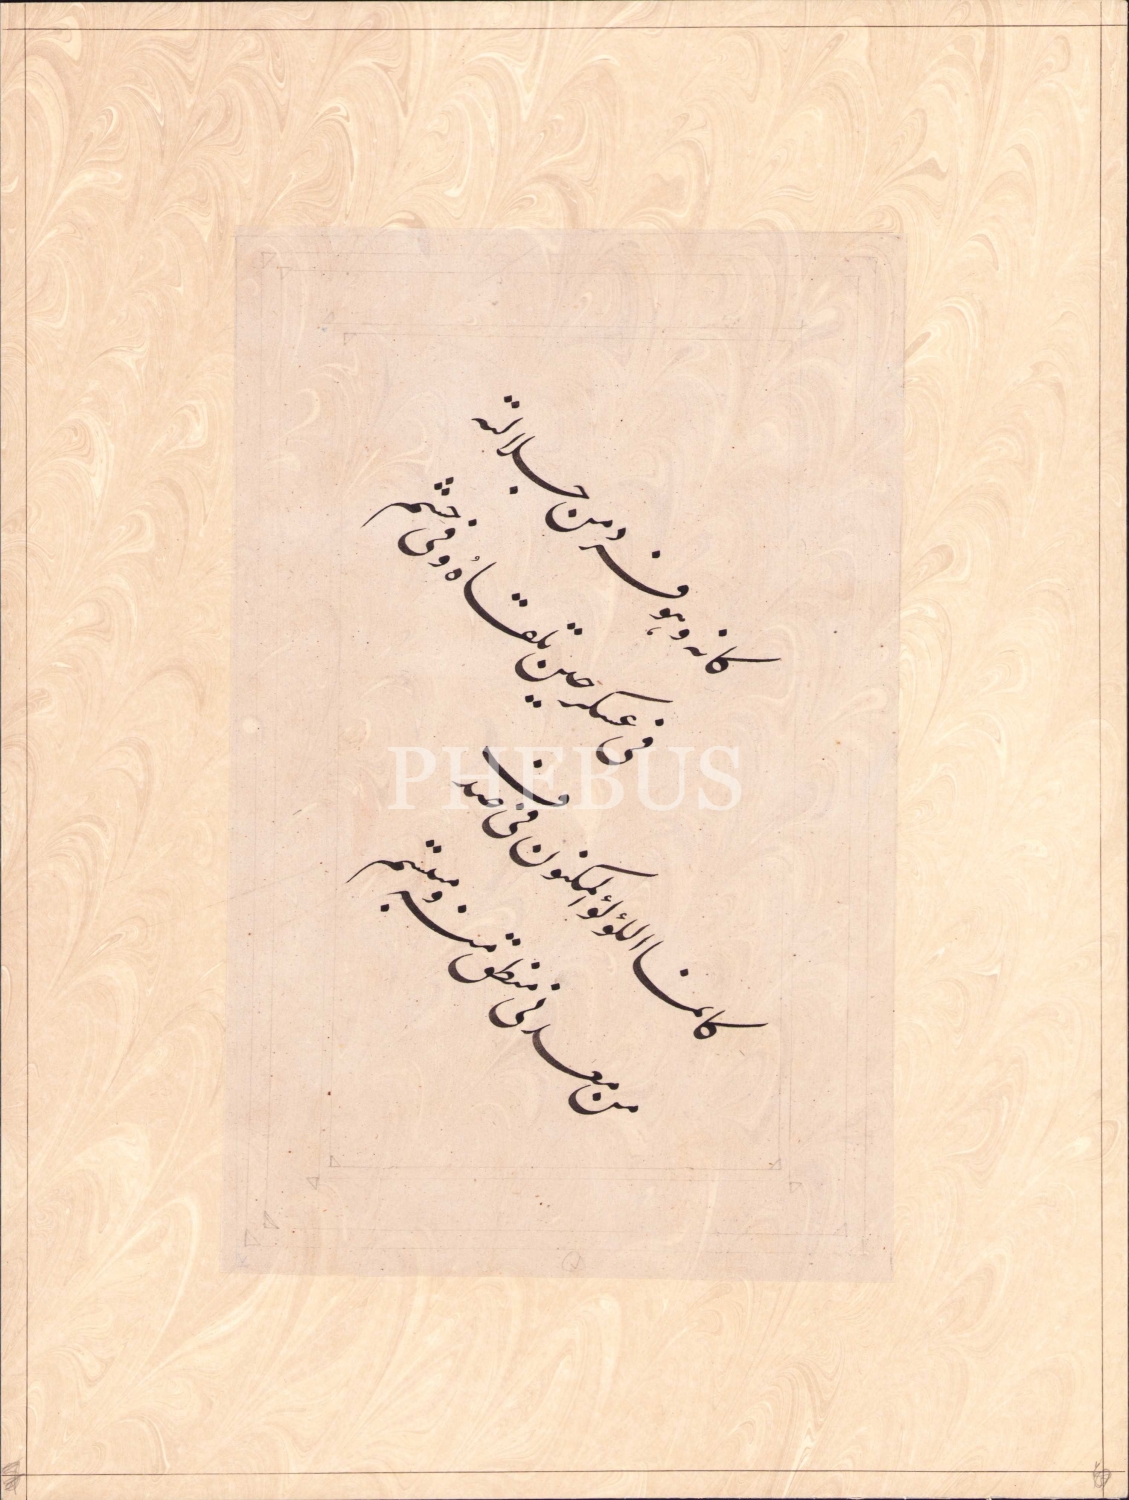 كانه وهو فرد من جلالته
في عسكر حين تلقاهُ وفي حشم
كانما اللؤلؤ المكنون في صدف
من معدني منطق منه ومبتسم
PHEBUS